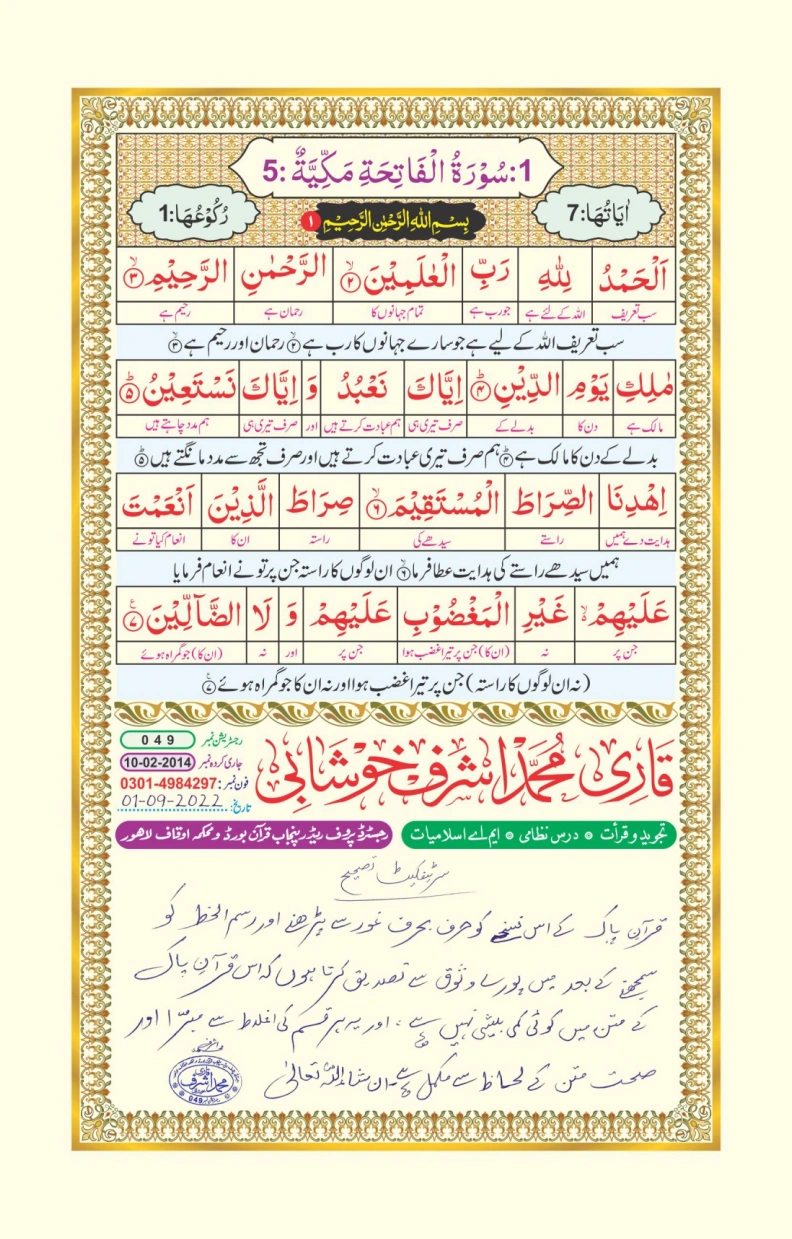 1:سُوْرَةُ الْفَاتِحَةِ مَكِّيَّةٌ :5
اٰيَاتُهَا:7
بِسْمِ اللهِ الرَّحْمٰنِ الرَّحِيْمِ ۱
رُكُوْعُهَا:1
اَلْحَمْدُ لِلّٰهِ رَبِّ الْعٰلَمِيْنَ ۲ الرَّحْمٰنِ الرَّحِيْمِ ۳
سب تعریف اللہ کے لئے ہے جو رب ہے تمام جہانوں کا رحمان ہے رحیم ہے
سب تعریف اللہ کے لیے ہے جو سارے جہانوں کا رب ہے ۲ رحمان اور رحیم ہے ۳
مٰلِكِ يَوْمِ الدِّيْنِ ۴ اِيَّاكَ نَعْبُدُ وَ اِيَّاكَ نَسْتَعِيْنُ ۵
مالک ہے دن کا بدلے کے صرف تیری ہی ہم عبادت کرتے ہیں اور صرف تیری ہی ہم مدد چاہتے ہیں
بدلے کے دن کا مالک ہے ۴ ہم صرف تیری عبادت کرتے ہیں اور صرف تجھ سے مدد مانگتے ہیں ۵
اِهْدِنَا الصِّرَاطَ الْمُسْتَقِيْمَ ۶ صِرَاطَ الَّذِيْنَ اَنْعَمْتَ
ہدایت دے ہمیں راستے سیدھے کی راستہ ان کا انعام کیا تو نے
ہمیں سیدھے راستے کی ہدایت عطا فرما ۶ ان لوگوں کا راستہ جن پر تو نے انعام فرمایا
عَلَيْهِمْ غَيْرِ الْمَغْضُوْبِ عَلَيْهِمْ وَ لَا الضَّآلِّيْنَ ۷
جن پر نہ (ان کا) جن پر تیرا غضب ہوا جن پر اور نہ (ان کا) جو گمراہ ہوئے
(نہ ان لوگوں کا راستہ) جن پر تیرا غضب ہوا اور نہ ان کا جو گمراہ ہوئے ۷
قاری محمد اشرف خوشابی
رجسٹریشن نمبر 049
جاری کردہ نمبر 10-02-2014
فون نمبر: 0301-4984297
تاریخ: 01-09-2022
تجوید و قرأت * درس نظامی * ایم اے اسلامیات
رجسٹرڈ پروف ریڈر پنجاب قرآن بورڈ و محکمہ اوقاف لاہور
سرٹیفکیٹ تصحیح
قرآن پاک کے اس نسخے کو حرف بحرف غور سے پڑھنے اور رسم الخط کو
سمجھنے کے بعد میں پورے وثوق سے تصدیق کرتا ہوں کہ اس قرآن پاک
کے متن میں کوئی کمی بیشی نہیں ہے، اور یہ ہر قسم کی اغلاط سے مبرّا اور
صحت متن کے لحاظ سے مکمل ہے۔ ان شاء اللہ تعالیٰ
قاری
محمد اشرف
049